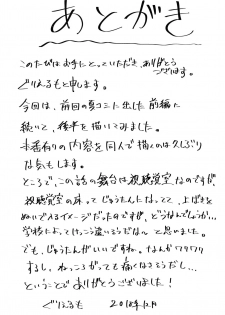 あとがき
このたびはお手にとっていただき、ありがとう
ございます。
ぐりえるもと申します。
今回は、前回の夏コミに出した前編に
続いて、後半を描いてみました。
本番有りの内容を同人で描くのは久しぶり
な気もします。
ところで、この話の舞台は視聴覚室なのですが、
視聴覚室の床って じゅうたんになってて、上ばきを
ぬいで入るイメージだったのですが、どうなんでしょうか…
学校によってけっこう違いそうだな〜 と思いました。
でも、じゅうたんがいいですね。なんかワクワク
するし、ねっころがっても痛くなさそうだし…
ということで ありがとうございました!
ぐりえるも 2018.12月